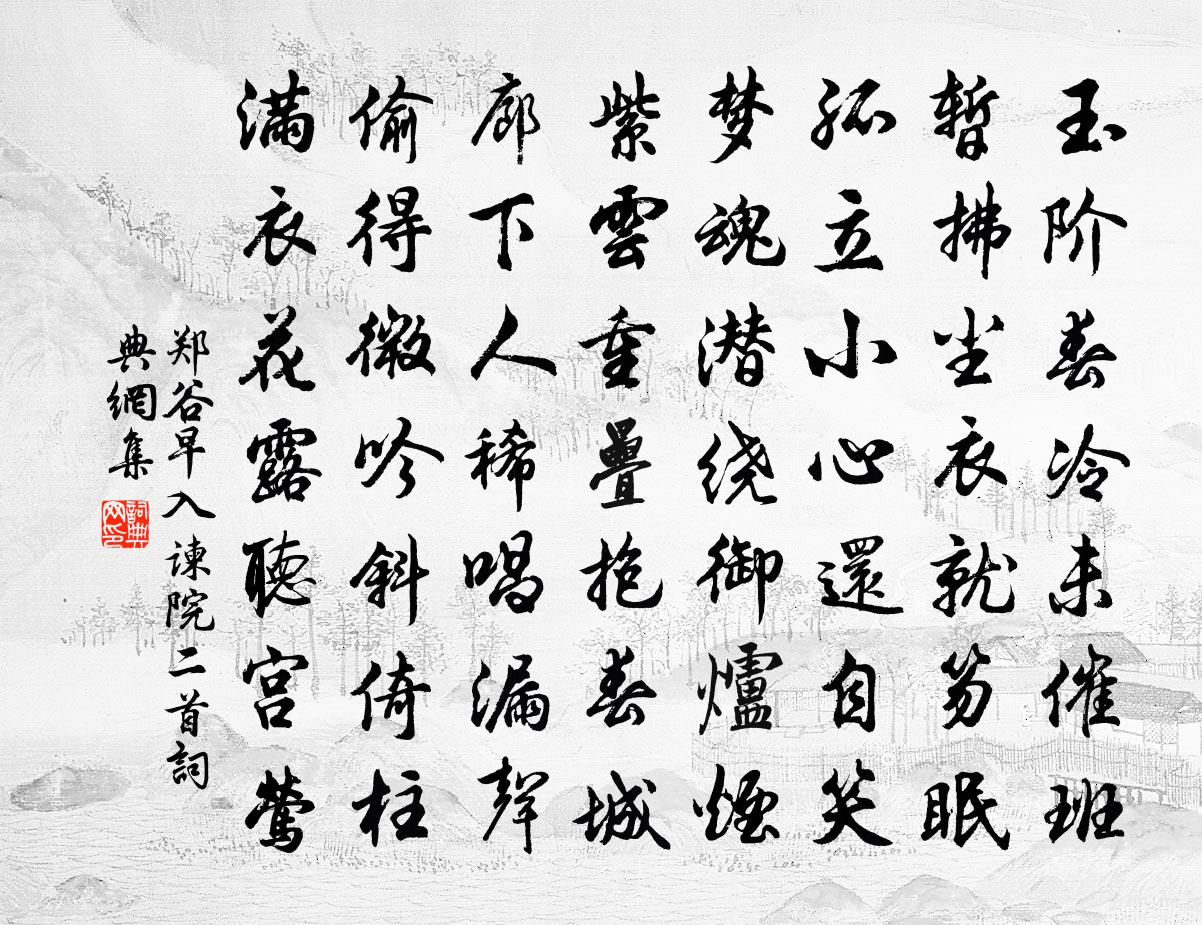 玉阶春冷未催班
暂拂尘衣就笏眠
孤立小心還自笑
梦魂潜绕御爐煙
紫雲重疊抱春城
廊下人稀唱漏聲
偷得微吟斜倚柱
满衣花露聽宫莺
郑谷早入谏院二首詞
典網集
詞典网印